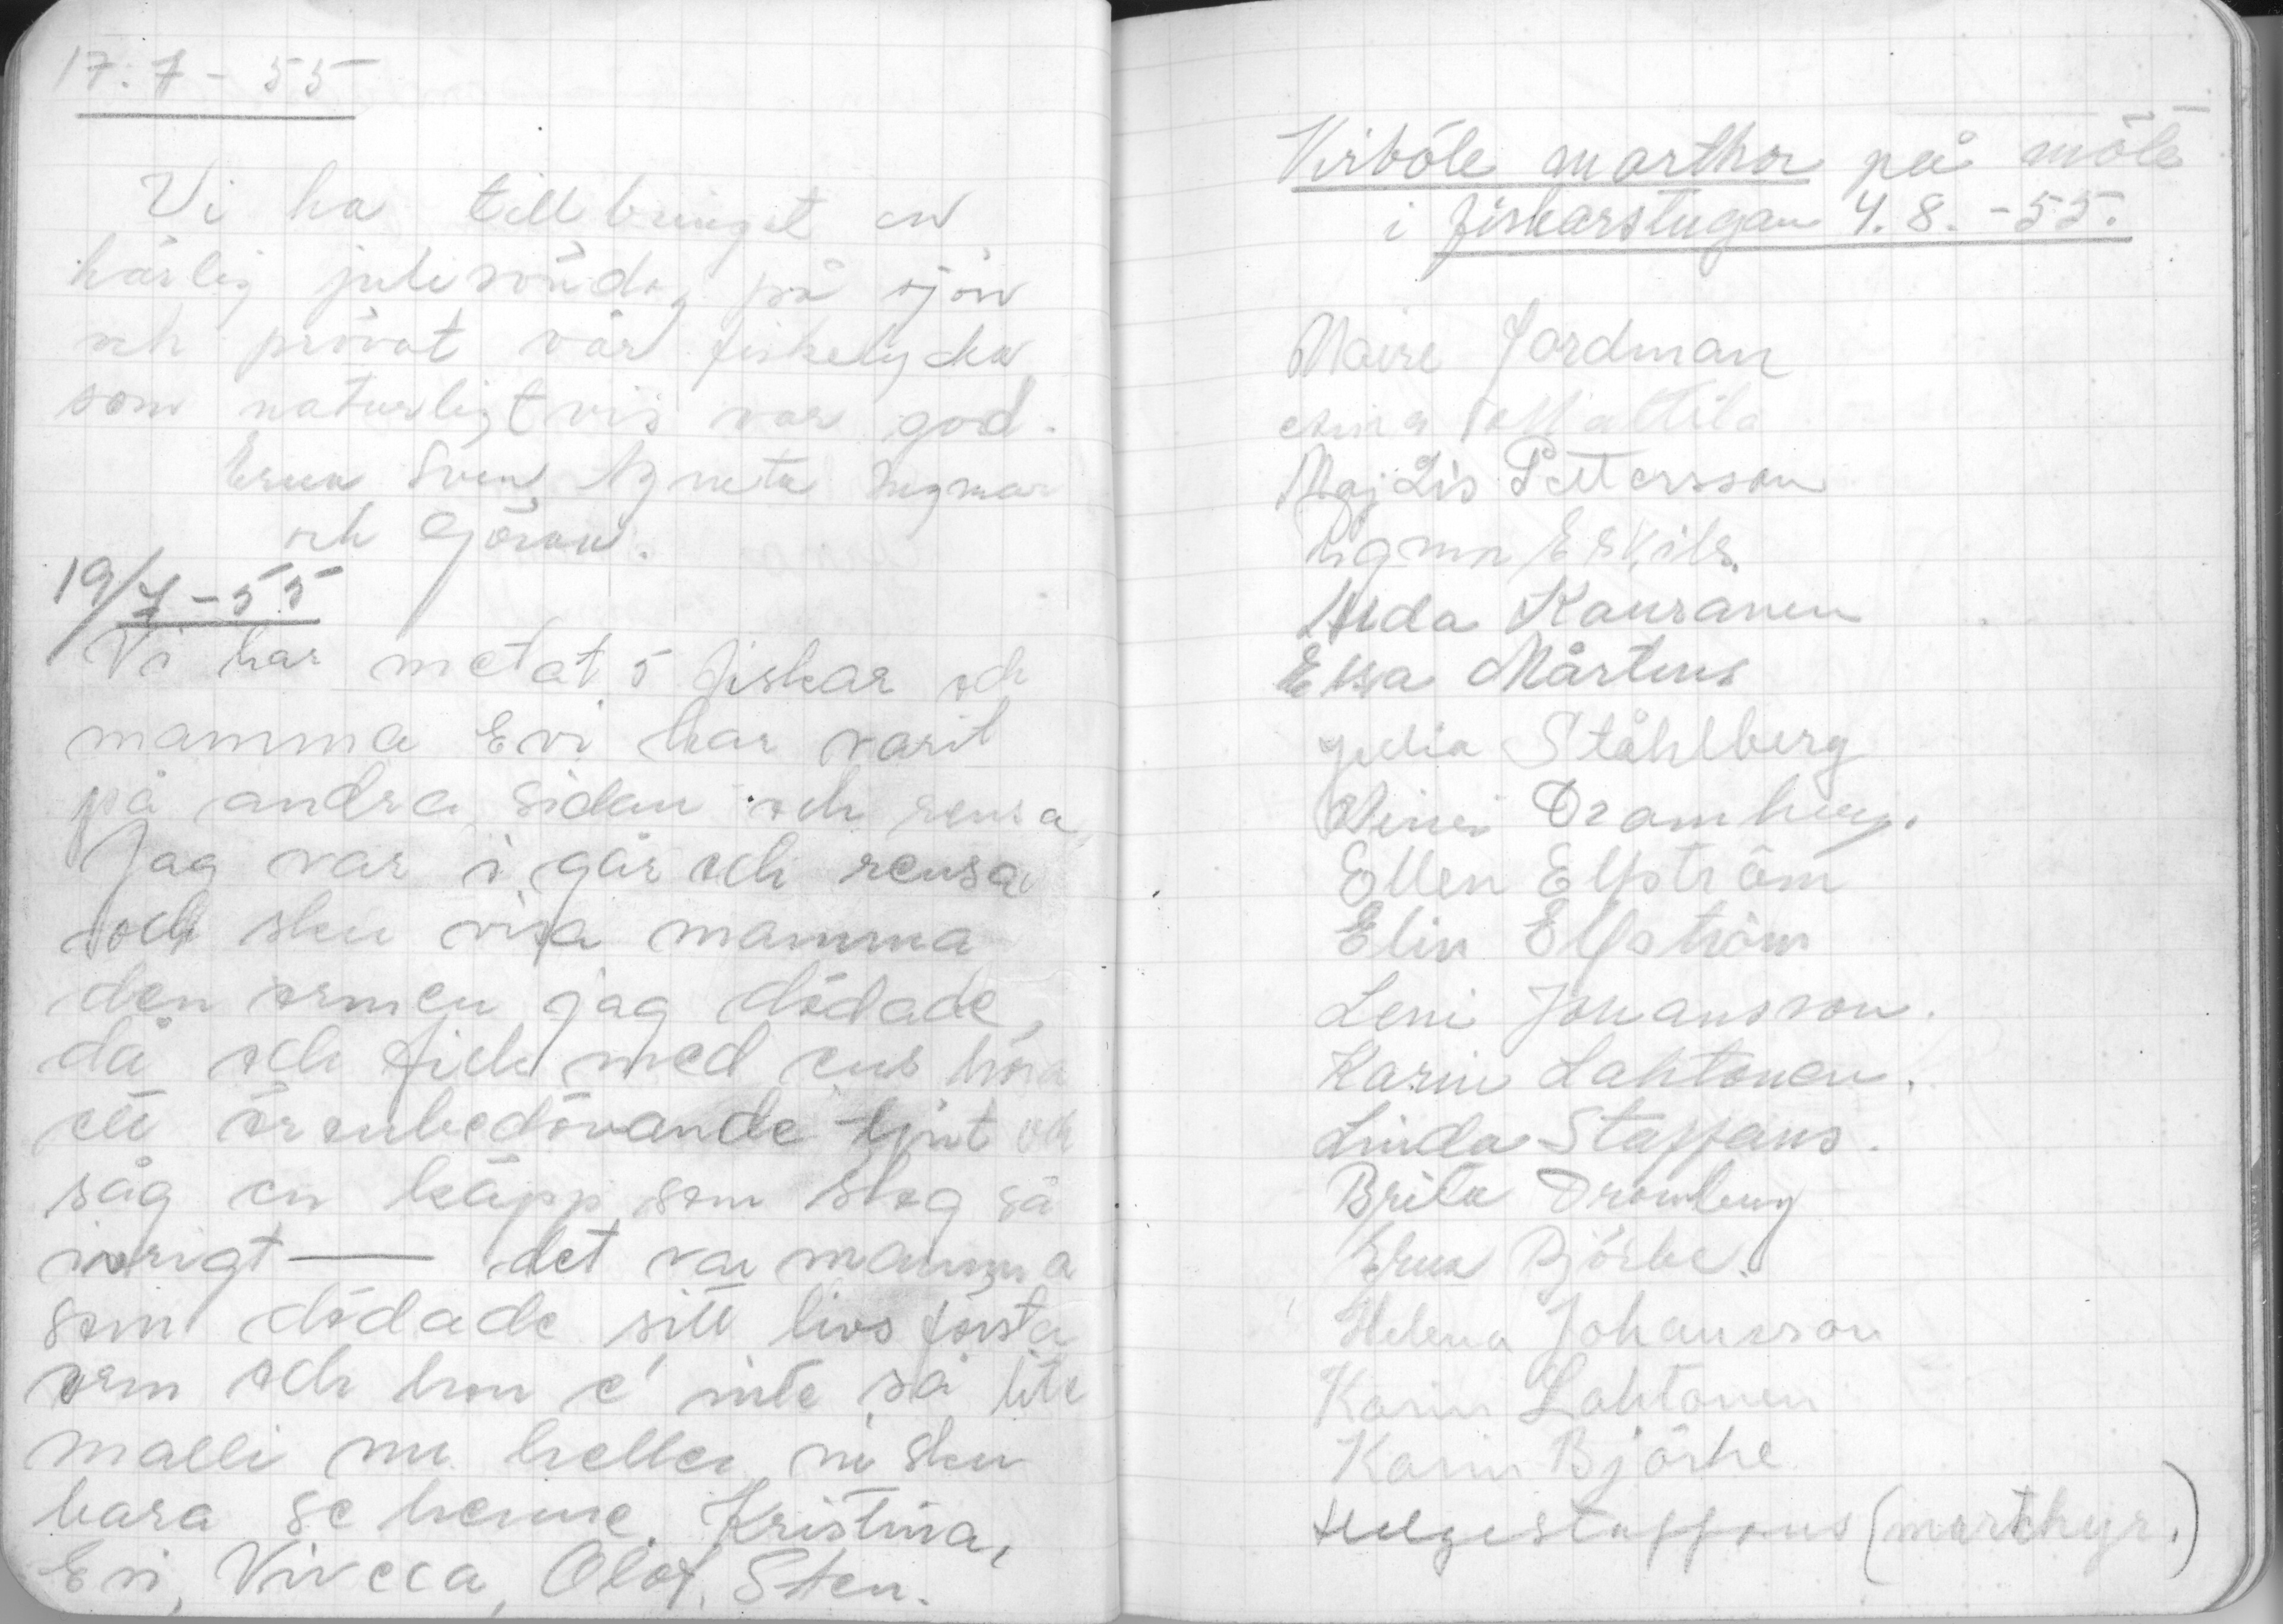 17.7 - 55
Vi ha tillbringat en
härlig julisöndag på sjön
och prövat vår fiskelycka
som naturligtvis var god.
Erna Sven Agneta Ingmar
och Göran.
19/7 - 55
Vi har metat 5 fiskar och
mamma Evi har varit
på andra sidan och rensa,
Jag var i går och rensa
och sku visa mamma
den ormen jag dödade,
då och fick med ens höra
ett öronbedövande tjut och
såg en käpp som slog så
ivrigt — det var mamma
som dödade sitt livs första
orm och hon e' inte så lite
malli nu heller ni sku
bara se henne. Kristina,
Evi, Vivecca, Olof, Sten.
Virböle marthor på möte
i fiskarstugan 4.8. - 55.
Maire Nordman
Mattila
Maj Lis Pettersson
Signe Eskils.
Alda Kauranen
Elsa Mårtens
Julia Ståhlberg
Dromberg.
Ellen Elfström
Elin Elfström
Leni Johansson.
Karin Lahtonen.
Linda Staffans.
Brita Dromberg
Erna Björke.
Helena Johansson
Karin Lahtonen
Karin Björke
Helge Staffans (marthyr.)